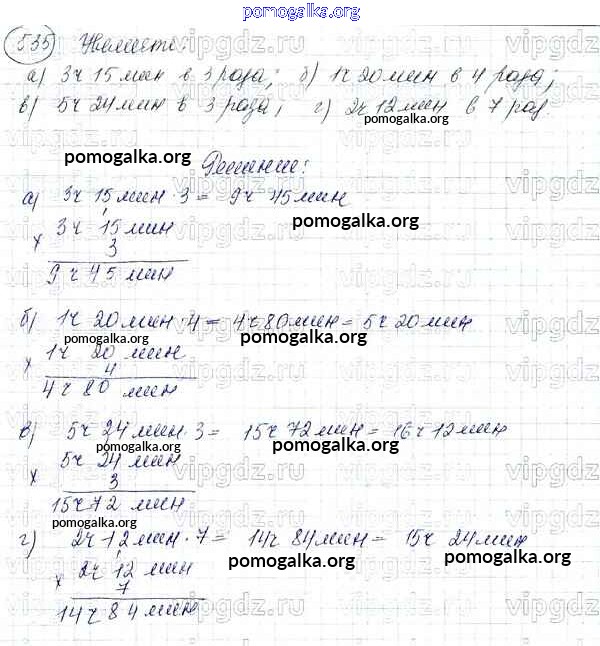 pomogalka.org
535 Увеличьте:
а) 3ч 15мин в 3 раза; б) 1ч 20мин в 4 раза;
в) 5ч 24мин в 3 раза; г) 2ч 12мин в 7 раз.
pomogalka.org
pomogalka.org
Решение:
а) 3ч 15мин · 3 = 9ч 45мин
pomogalka.org
× 3ч 15мин
3
9ч 45мин
б) 1ч 20мин · 4 = 4ч 80мин = 5ч 20мин
pomogalka.org
× 1ч 20 мин
4
4ч 80 мин
в) 5ч 24мин · 3 = 15ч 72мин = 16ч 12мин
pomogalka.org
pomogalka.org
× 5ч 24 мин
3
15ч 72 мин
pomogalka.org
г) 2ч 12мин · 7 = 14ч 84мин = 15ч 24мин
pomogalka.org
pomogalka.org
× 2ч 12 мин
7
14ч 84 мин